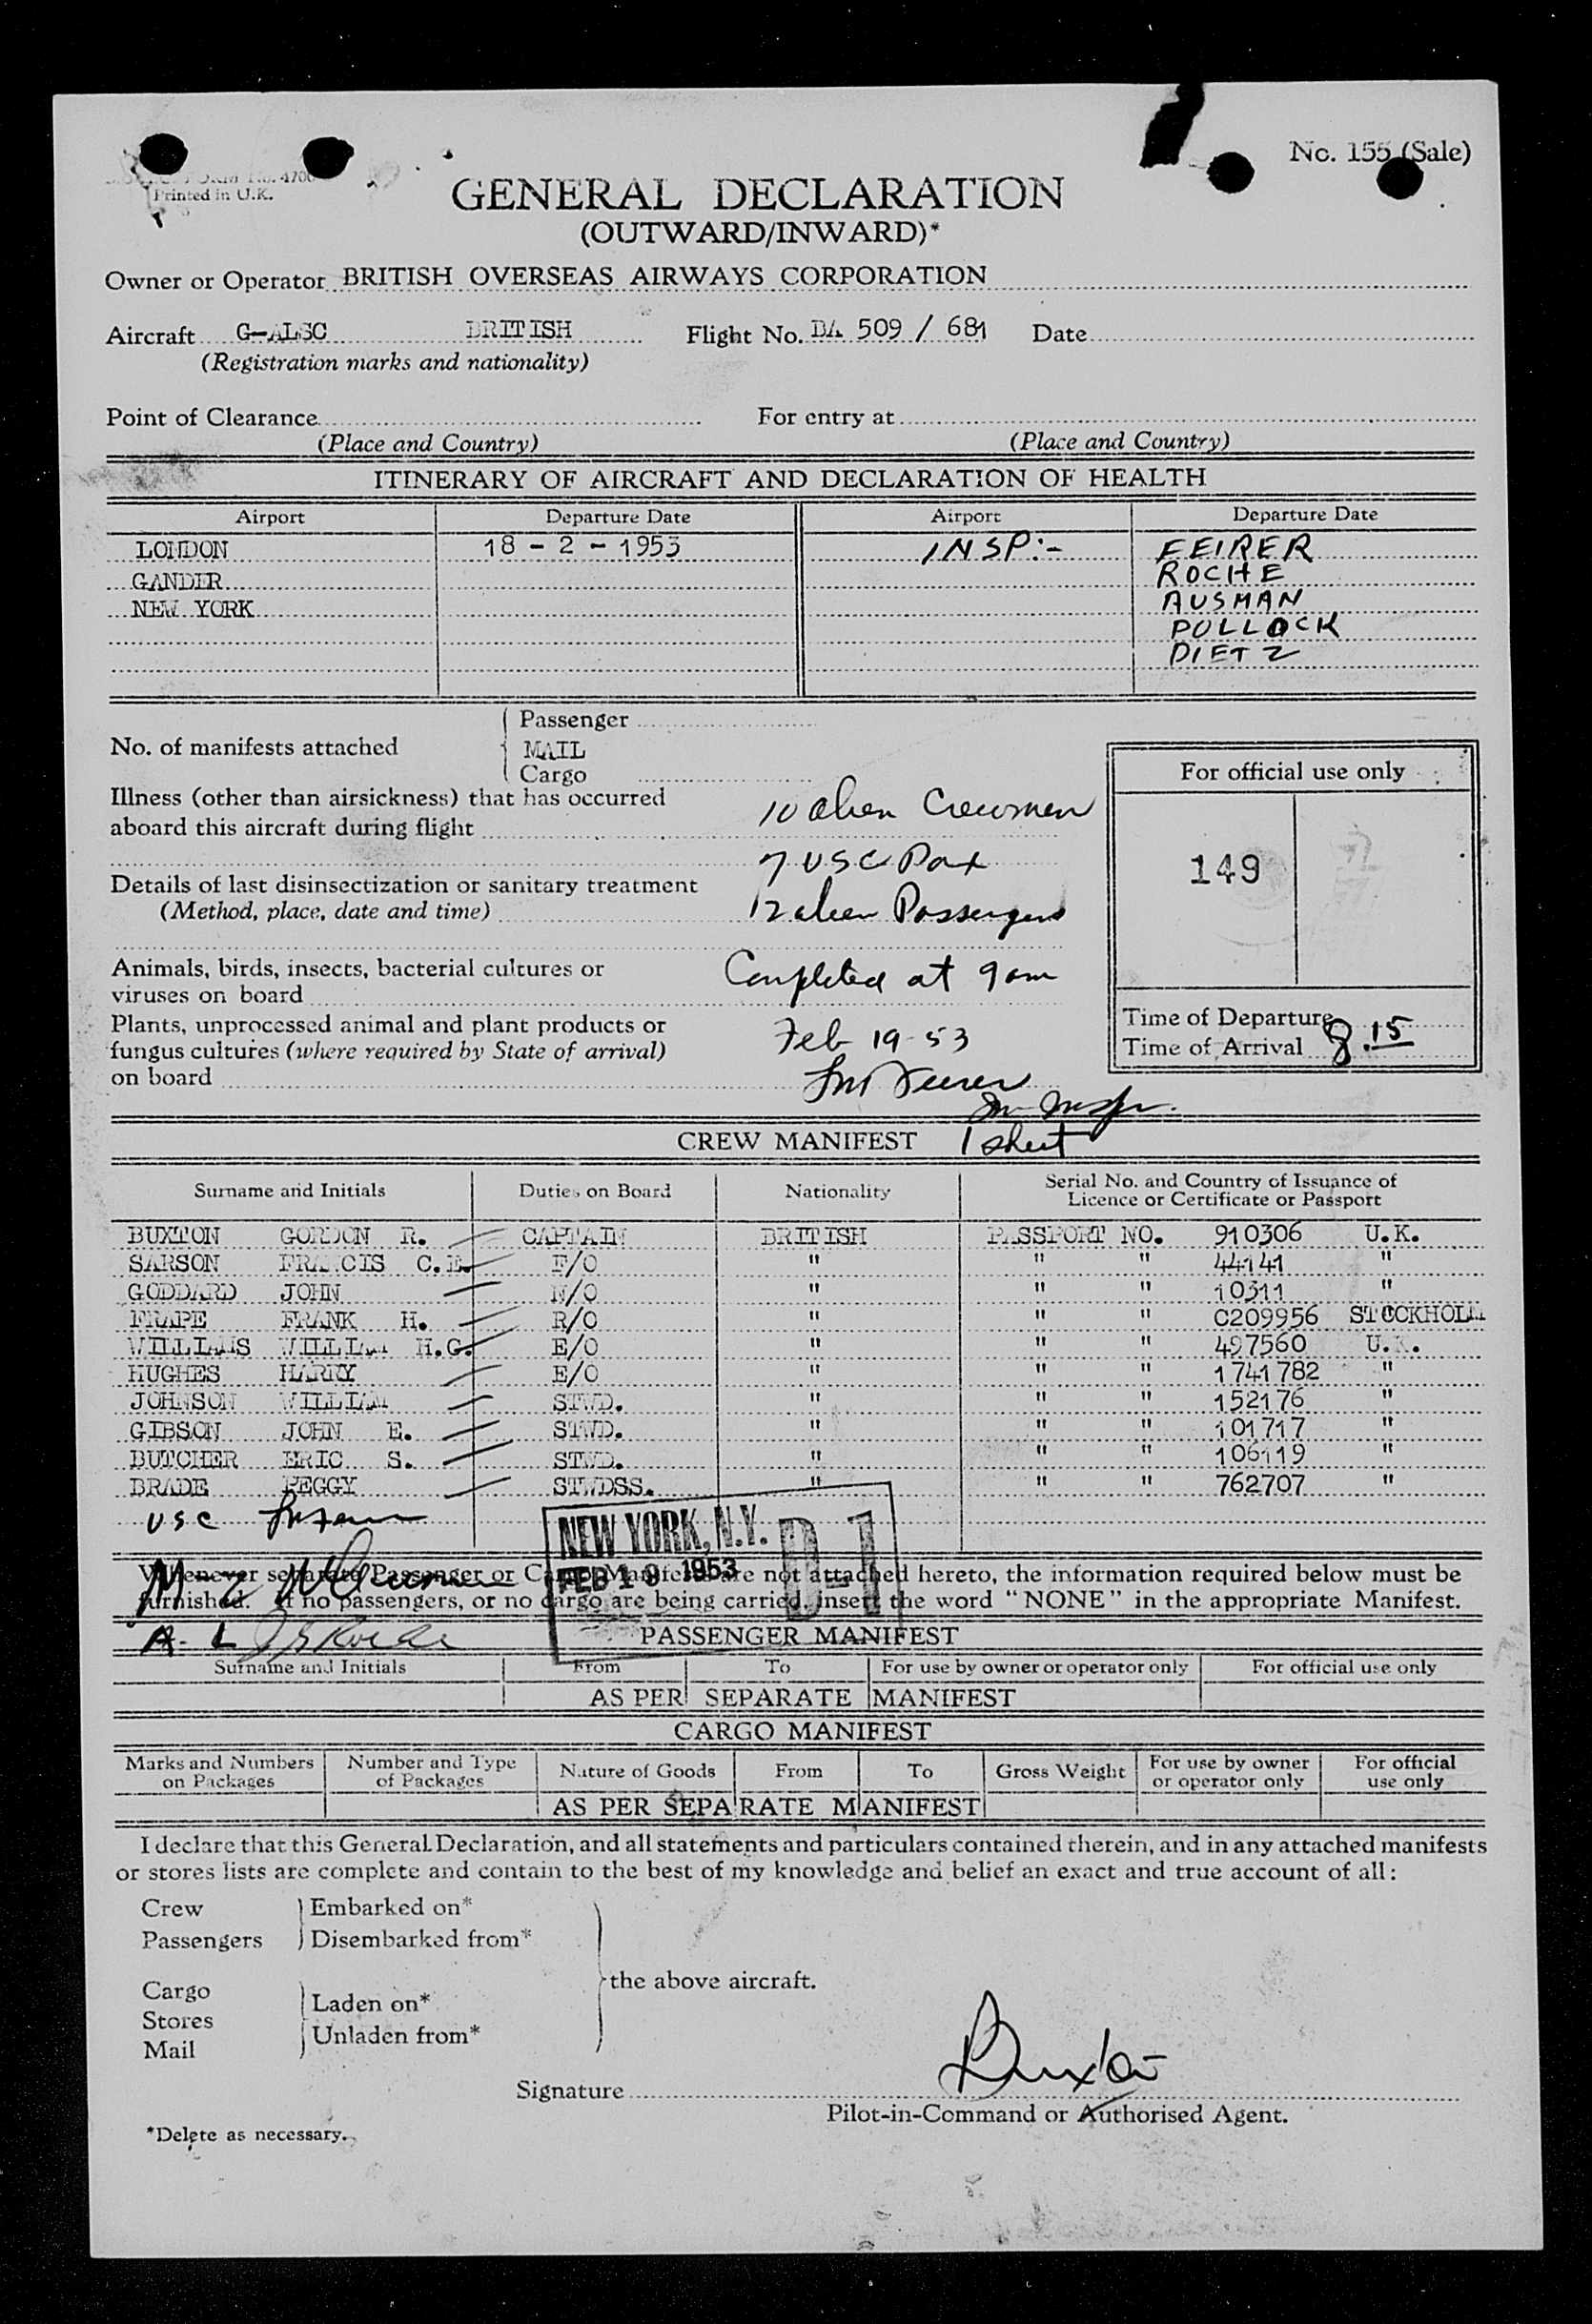 No. 155 (Sale)
Printed in U.K.
GENERAL DECLARATION
(OUTWARD/INWARD)*
Owner or Operator BRITISH OVERSEAS AIRWAYS CORPORATION
Aircraft G-ALSC BRITISH Flight No. BA 509 / 681 Date
(Registration marks and nationality)
Point of Clearance For entry at
(Place and Country) (Place and Country)
ITINERARY OF AIRCRAFT AND DECLARATION OF HEALTH
Airport Departure Date Airport Departure Date
LONDON 18 - 2 - 1953 INSP:- FEIRER
GANDER ROCHE
NEW YORK AUSMAN
POLLOCK
DIETZ
Passenger
No. of manifests attached MAIL
Cargo
For official use only
Illness (other than airsickness) that has occurred
aboard this aircraft during flight 10 alien Crewmen
7 USC Pax
149
Details of last disinsectization or sanitary treatment
(Method, place, date and time) 12 alien Passengers
Animals, birds, insects, bacterial cultures or
viruses on board Completed at 9am
Plants, unprocessed animal and plant products or
fungus cultures (where required by State of arrival) Feb 19-53
on board
Time of Departure
Time of Arrival 8.15
CREW MANIFEST 1 sheet
Surname and Initials Duties on Board Nationality Serial No. and Country of Issuance of
Licence or Certificate or Passport
BUXTON GORDON R. CAPTAIN BRITISH PASSPORT NO. 910306 U.K.
SARSON FRANCIS C.E. F/O " " " 44141 "
GODDARD JOHN N/O " " " 10311 "
FRAPE FRANK H. R/O " " " C209956 STOCKHOLM
WILLIAMS WILLIAM H.G. E/O " " " 497560 U.K.
HUGHES HARRY E/O " " " 1741782 "
JOHNSON WILLIAM STWD. " " " 152176 "
GIBSON JOHN E. STWD. " " " 101717 "
BUTCHER ERIC S. STWD. " " " 106119 "
BRADE PEGGY STWDSS. " " " 762707 "
USC
NEW YORK, N.Y. D-1
FEB 19 1953
Whenever separate Passenger or Cargo Manifests are not attached hereto, the information required below must be
furnished. If no passengers, or no cargo are being carried, insert the word "NONE" in the appropriate Manifest.
A. L
PASSENGER MANIFEST
Surname and Initials From To For use by owner or operator only For official use only
AS PER SEPARATE MANIFEST
CARGO MANIFEST
Marks and Numbers on Packages Number and Type of Packages Nature of Goods From To Gross Weight For use by owner or operator only For official use only
AS PER SEPARATE MANIFEST
I declare that this General Declaration, and all statements and particulars contained therein, and in any attached manifests
or stores lists are complete and contain to the best of my knowledge and belief an exact and true account of all:
Crew Embarked on*
Passengers Disembarked from*
the above aircraft.
Cargo
Laden on*
Stores
Unladen from*
Mail
Signature Buxton
Pilot-in-Command or Authorised Agent.
*Delete as necessary.